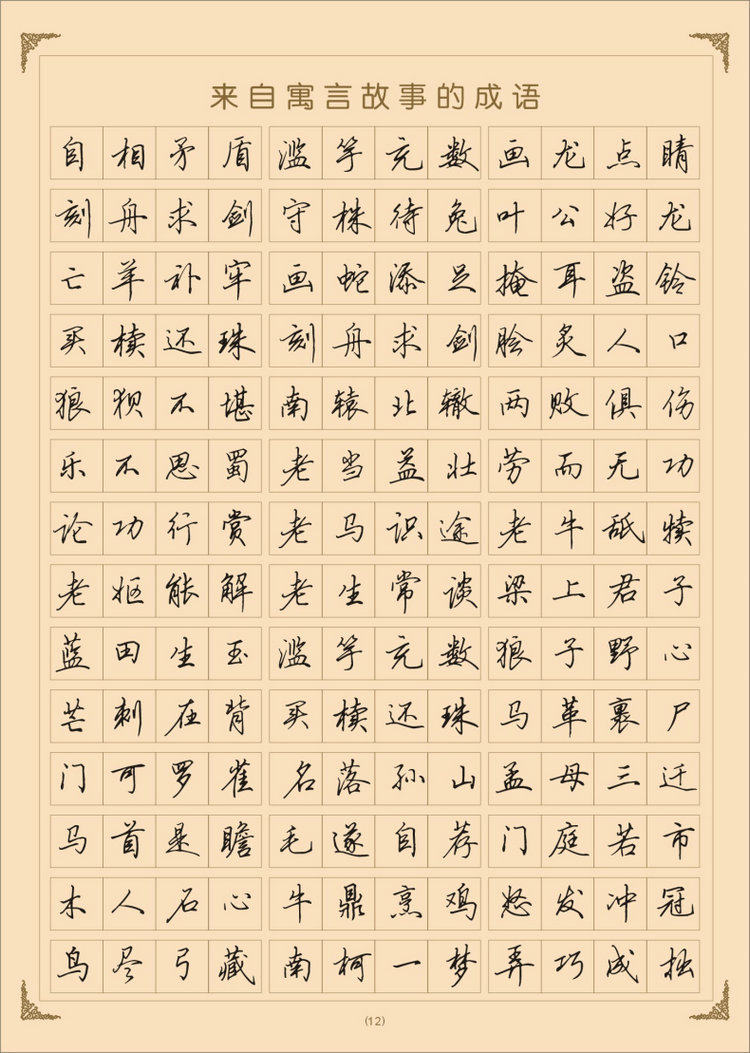 来自寓言故事的成语
自相矛盾 滥竽充数 画龙点睛
刻舟求剑 守株待兔 叶公好龙
亡羊补牢 画蛇添足 掩耳盗铃
买椟还珠 刻舟求剑 脍炙人口
狼狈不堪 南辕北辙 两败俱伤
乐不思蜀 老当益壮 劳而无功
论功行赏 老马识途 老牛舐犊
老妪能解 老生常谈 梁上君子
蓝田生玉 滥竽充数 狼子野心
芒刺在背 买椟还珠 马革裹尸
门可罗雀 名落孙山 孟母三迁
马首是瞻 毛遂自荐 门庭若市
木人石心 牛鼎烹鸡 怒发冲冠
鸟尽弓藏 南柯一梦 弄巧成拙
(12)